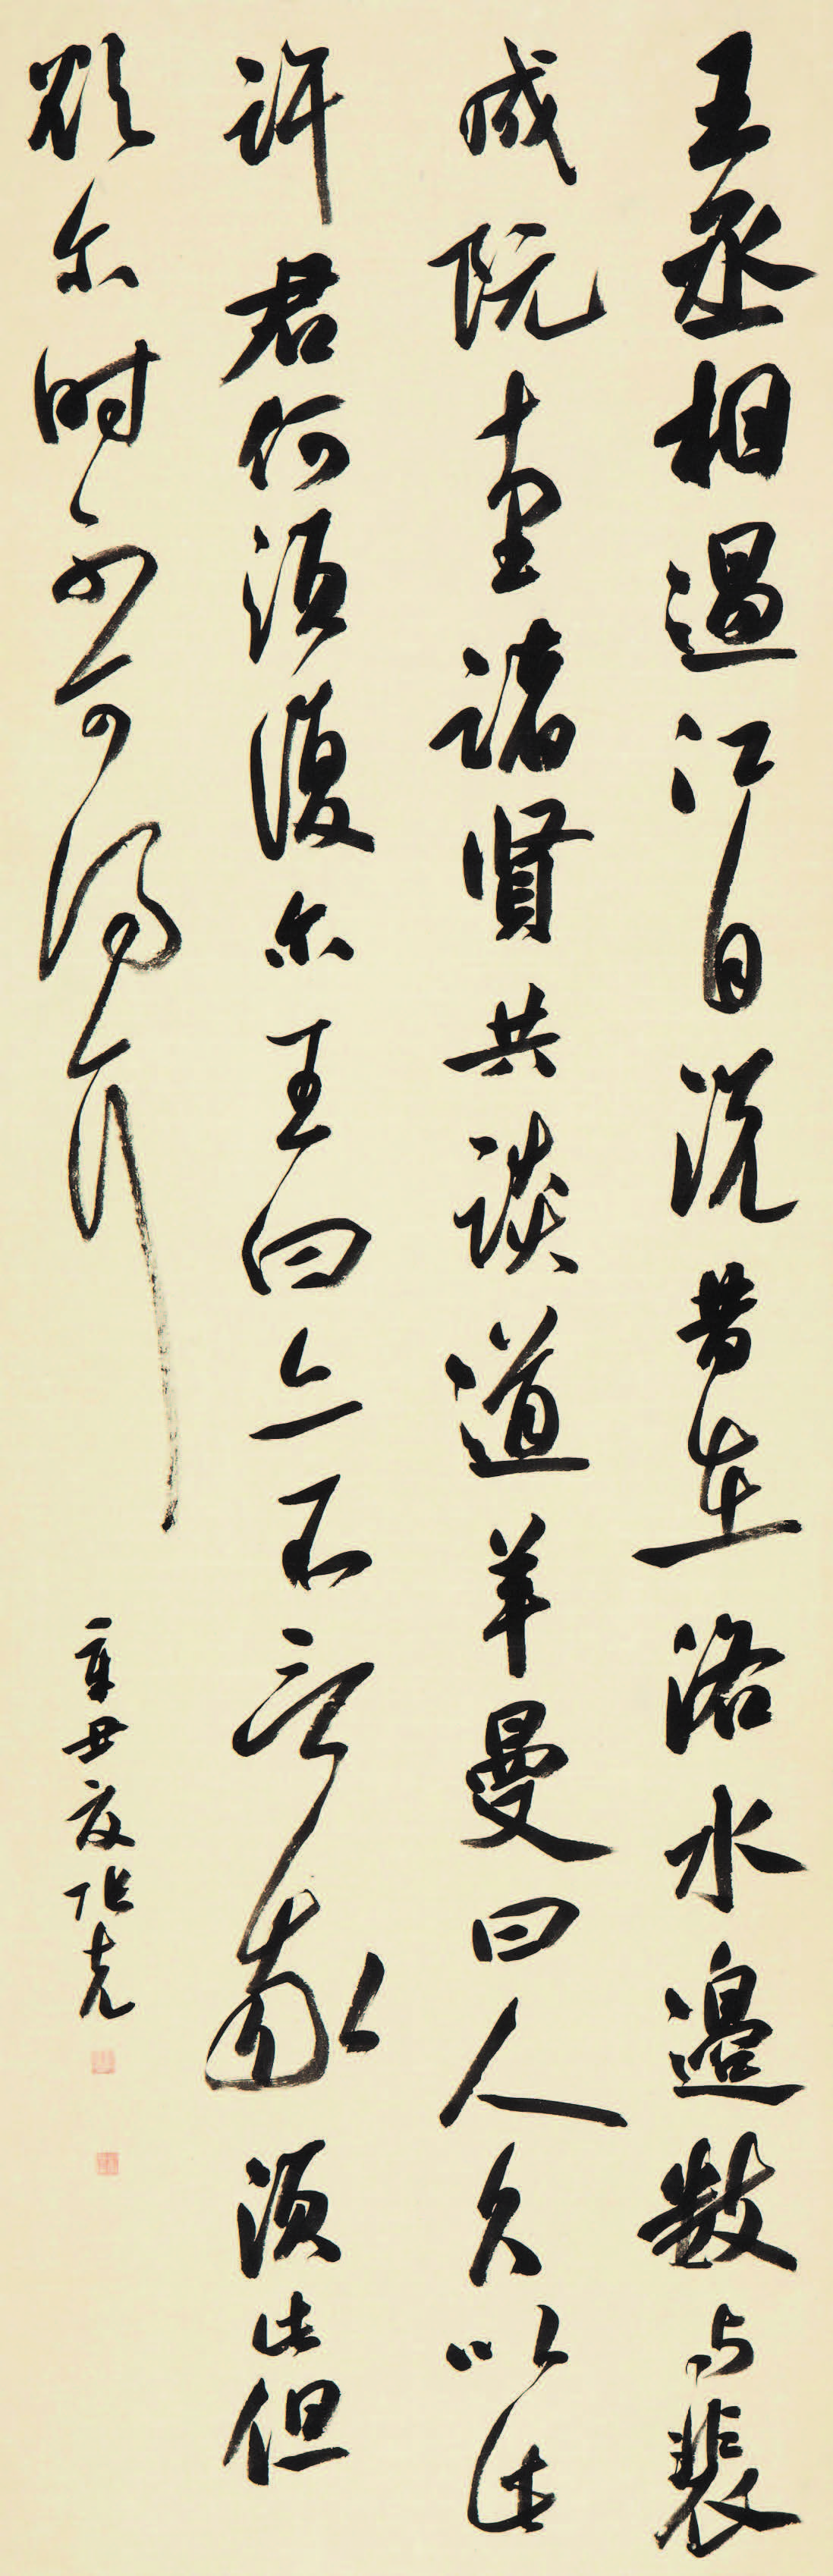 王丞相過江自說昔在洛水邊數與裴
成阮千里諸賢共談道羊曼曰人久以此
許君何須復尔王曰亦不言我須此但
欲尔時不可得耳
辛丑夏張克